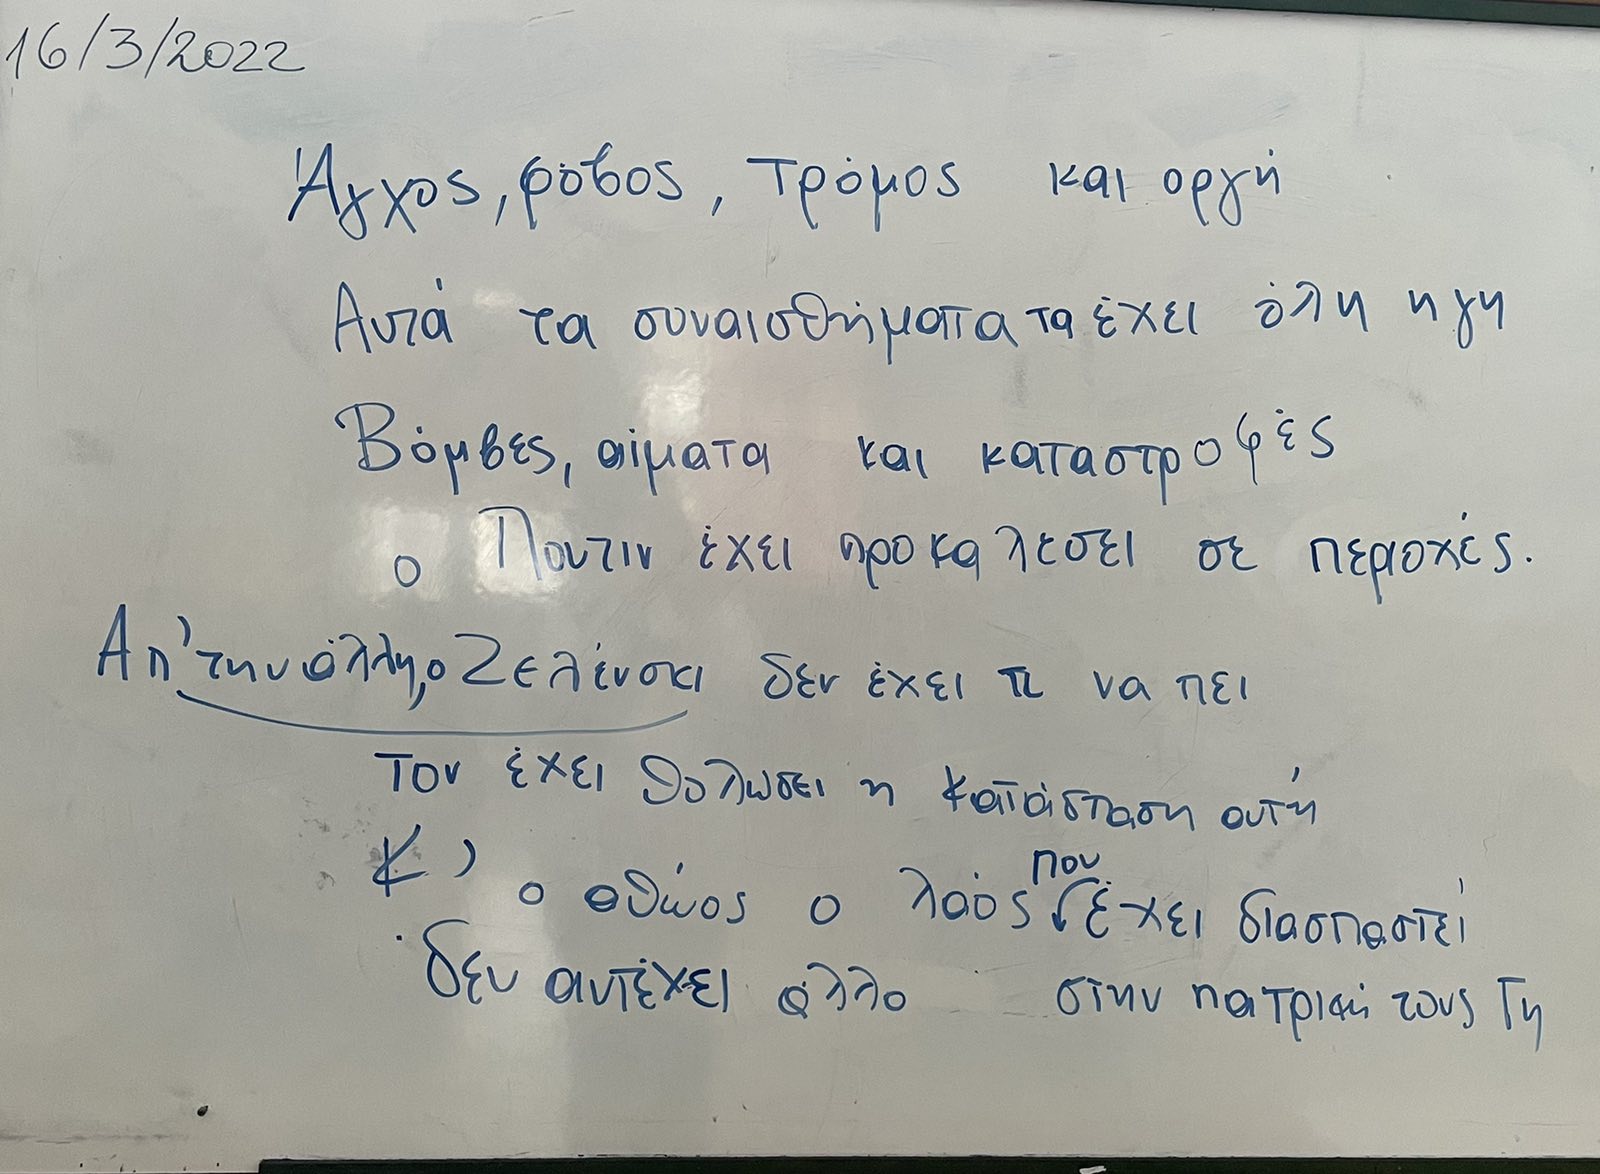 16/3/2022
Άγχος, φόβος, τρόμος και οργή
Αυτά τα συναισθήματα τα έχει όλη η γη
Βόμβες, αίματα και καταστροφές
ο Πουτιν έχει προκαλέσει σε περιοχές.
Απ' την άλλη, ο Ζελένσκι δεν έχει τι να πει
τον έχει θολώσει η κατάσταση αυτή
Κ' ο αθώος ο λαός που έχει διασπαστεί
δεν αντέχει άλλο στην πατρική τους Γη